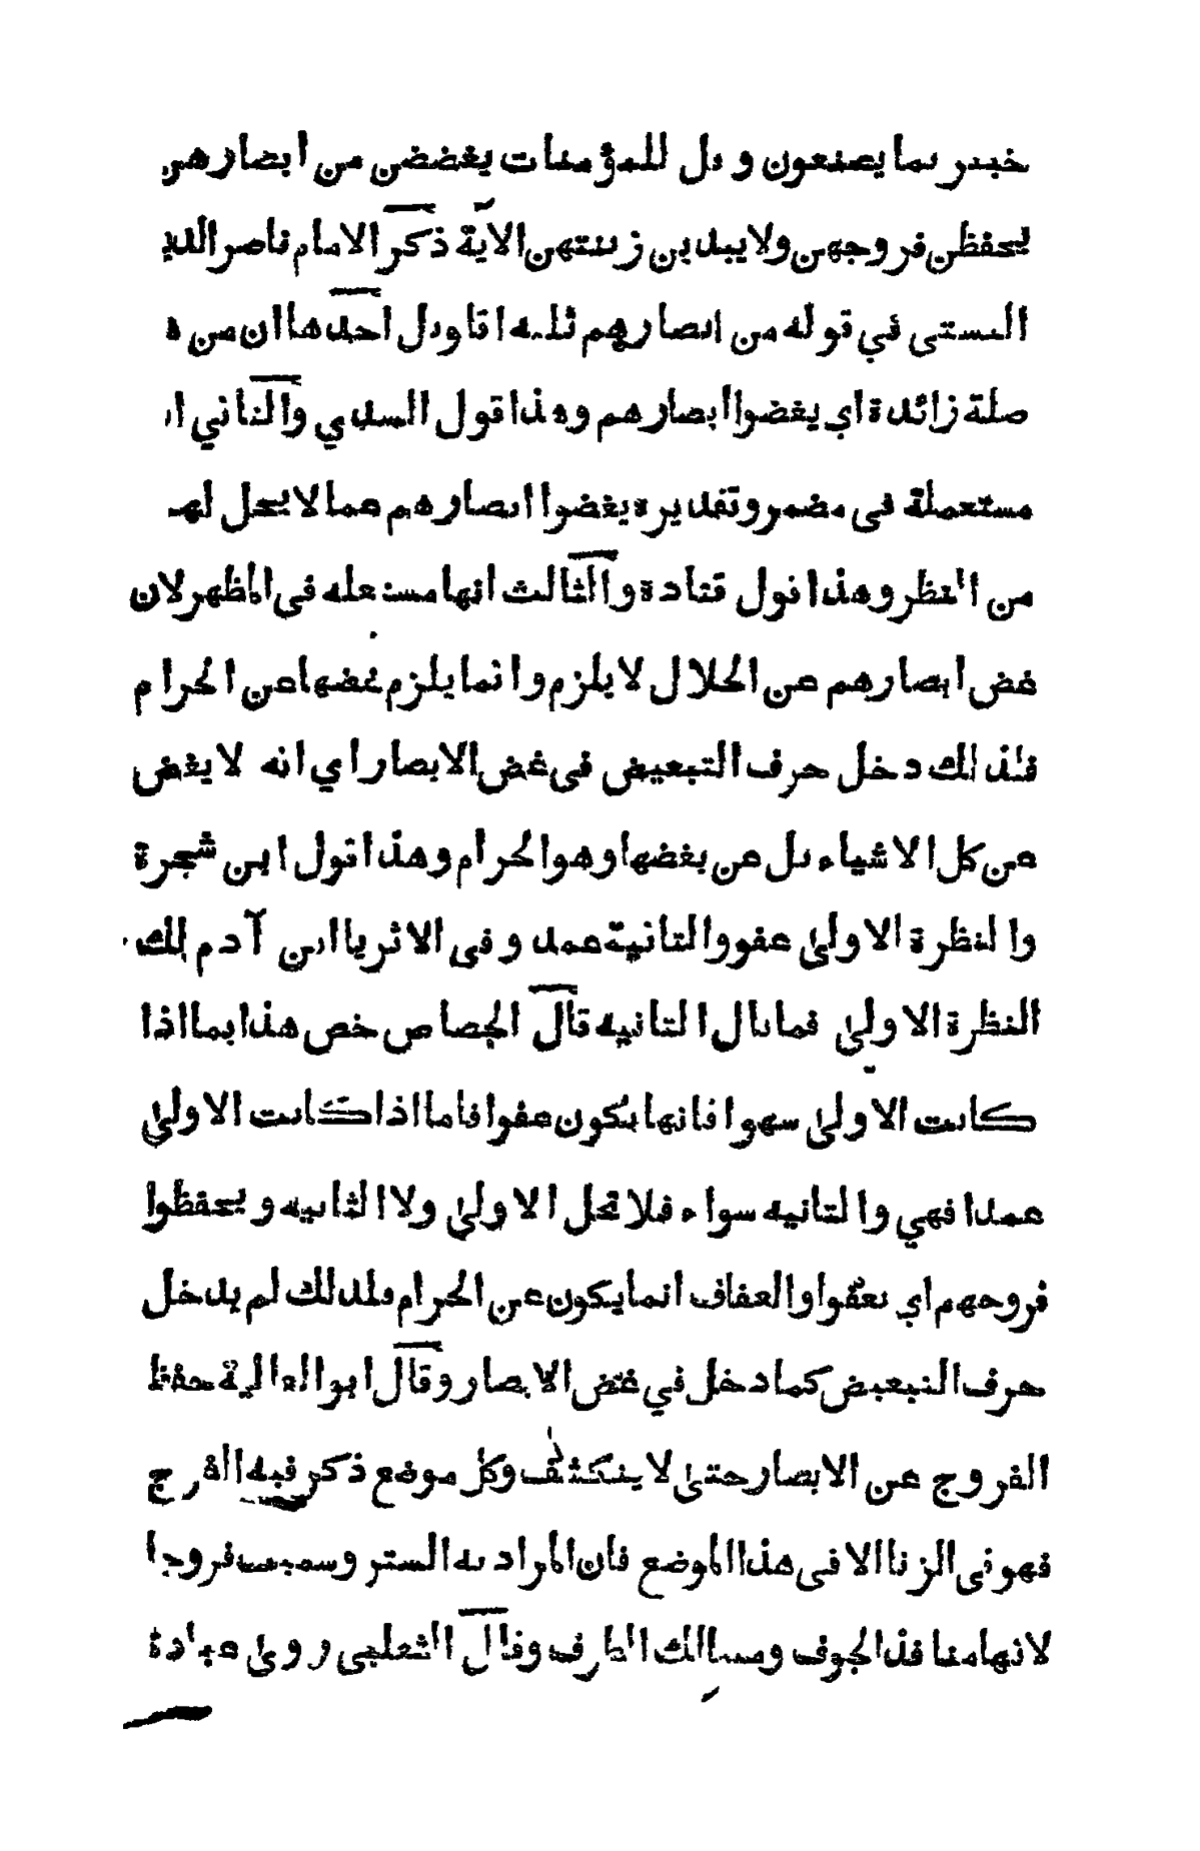 خبير بما يصنعون وقل للمؤمنات يغضضن من ابصارهن
يحفظن فروجهن ولا يبدين زينتهن الاية ذكر الامام ناصر الدين
البستى في قوله من ابصارهم ثلثه اقاويل احدها ان من ه
صلة زائدة اي يغضوا ابصارهم وهذا قول السدي والثاني ا
مستعملة فى مضمر وتقديره يغضوا ابصارهم عما لا يحل لهم
من النظر وهذا قول قتادة والثالث انها مستعمله فى المظهر لان
غض ابصارهم عن الحلال لا يلزم وانما يلزم غضها عن الحرام
فلذلك دخل حرف التبعيض فى غض الابصار اي انه لا يغض
عن كل الاشياء بل عن بعضها وهو الحرام وهذا قول ابن شجرة
والنظرة الاولى عفو والثانية عمد وفى الاثر يا ابن آدم لك
النظرة الاولى فما بال الثانيه قال الجصاص خص هذا بما اذا
كانت الاولى سهوا فانها يكون عفوا فاما اذا كانت الاولى
عمدا فهي والثانيه سواء فلا تحل الاولى ولا الثانيه ويحفظوا
فروجهم اي يعفوا والعفاف انما يكون عن الحرام فلذلك لم يدخل
حرف التبعيض كما دخل في غض الابصار وقال ابو العالية حفظ
الفروج عن الابصار حتى لا ينكشف وكل موضع ذكر فيه الفرج
فهو فى الزنا الا فى هذا الموضع فان المراد به الستر وسميت فروجا
لانها منافذ الجوف ومسالك الطرف وقال الثعلبى روى عبادة